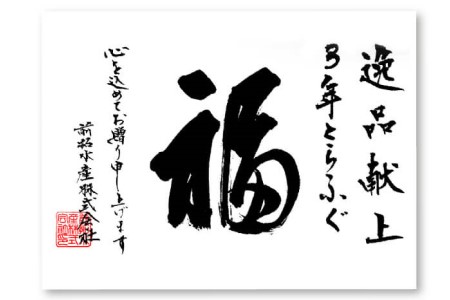 逸品献上
3年とらふぐ
福
心を込めてお贈り申し上げます
前拓水産株式会社